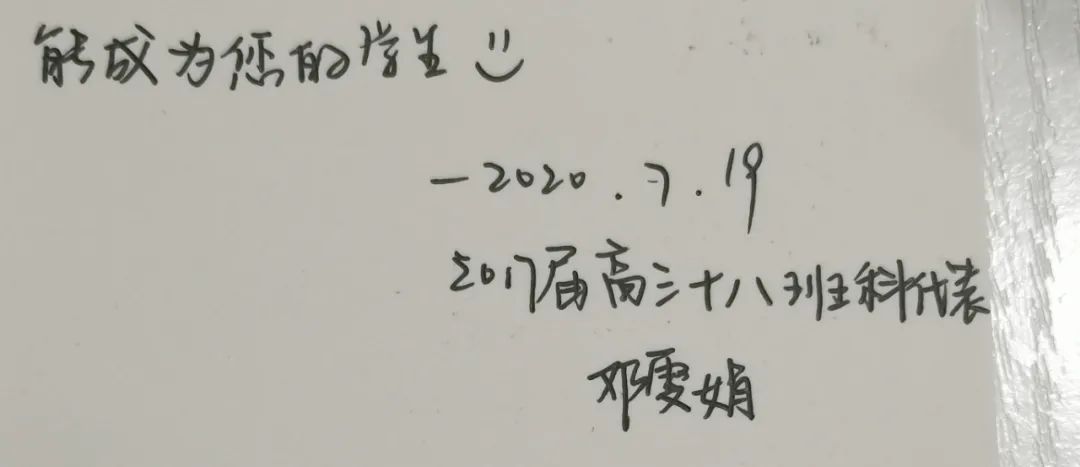 能成为您的学生
—2020.7.19
2017届高三十八班科代表
邓雯娟